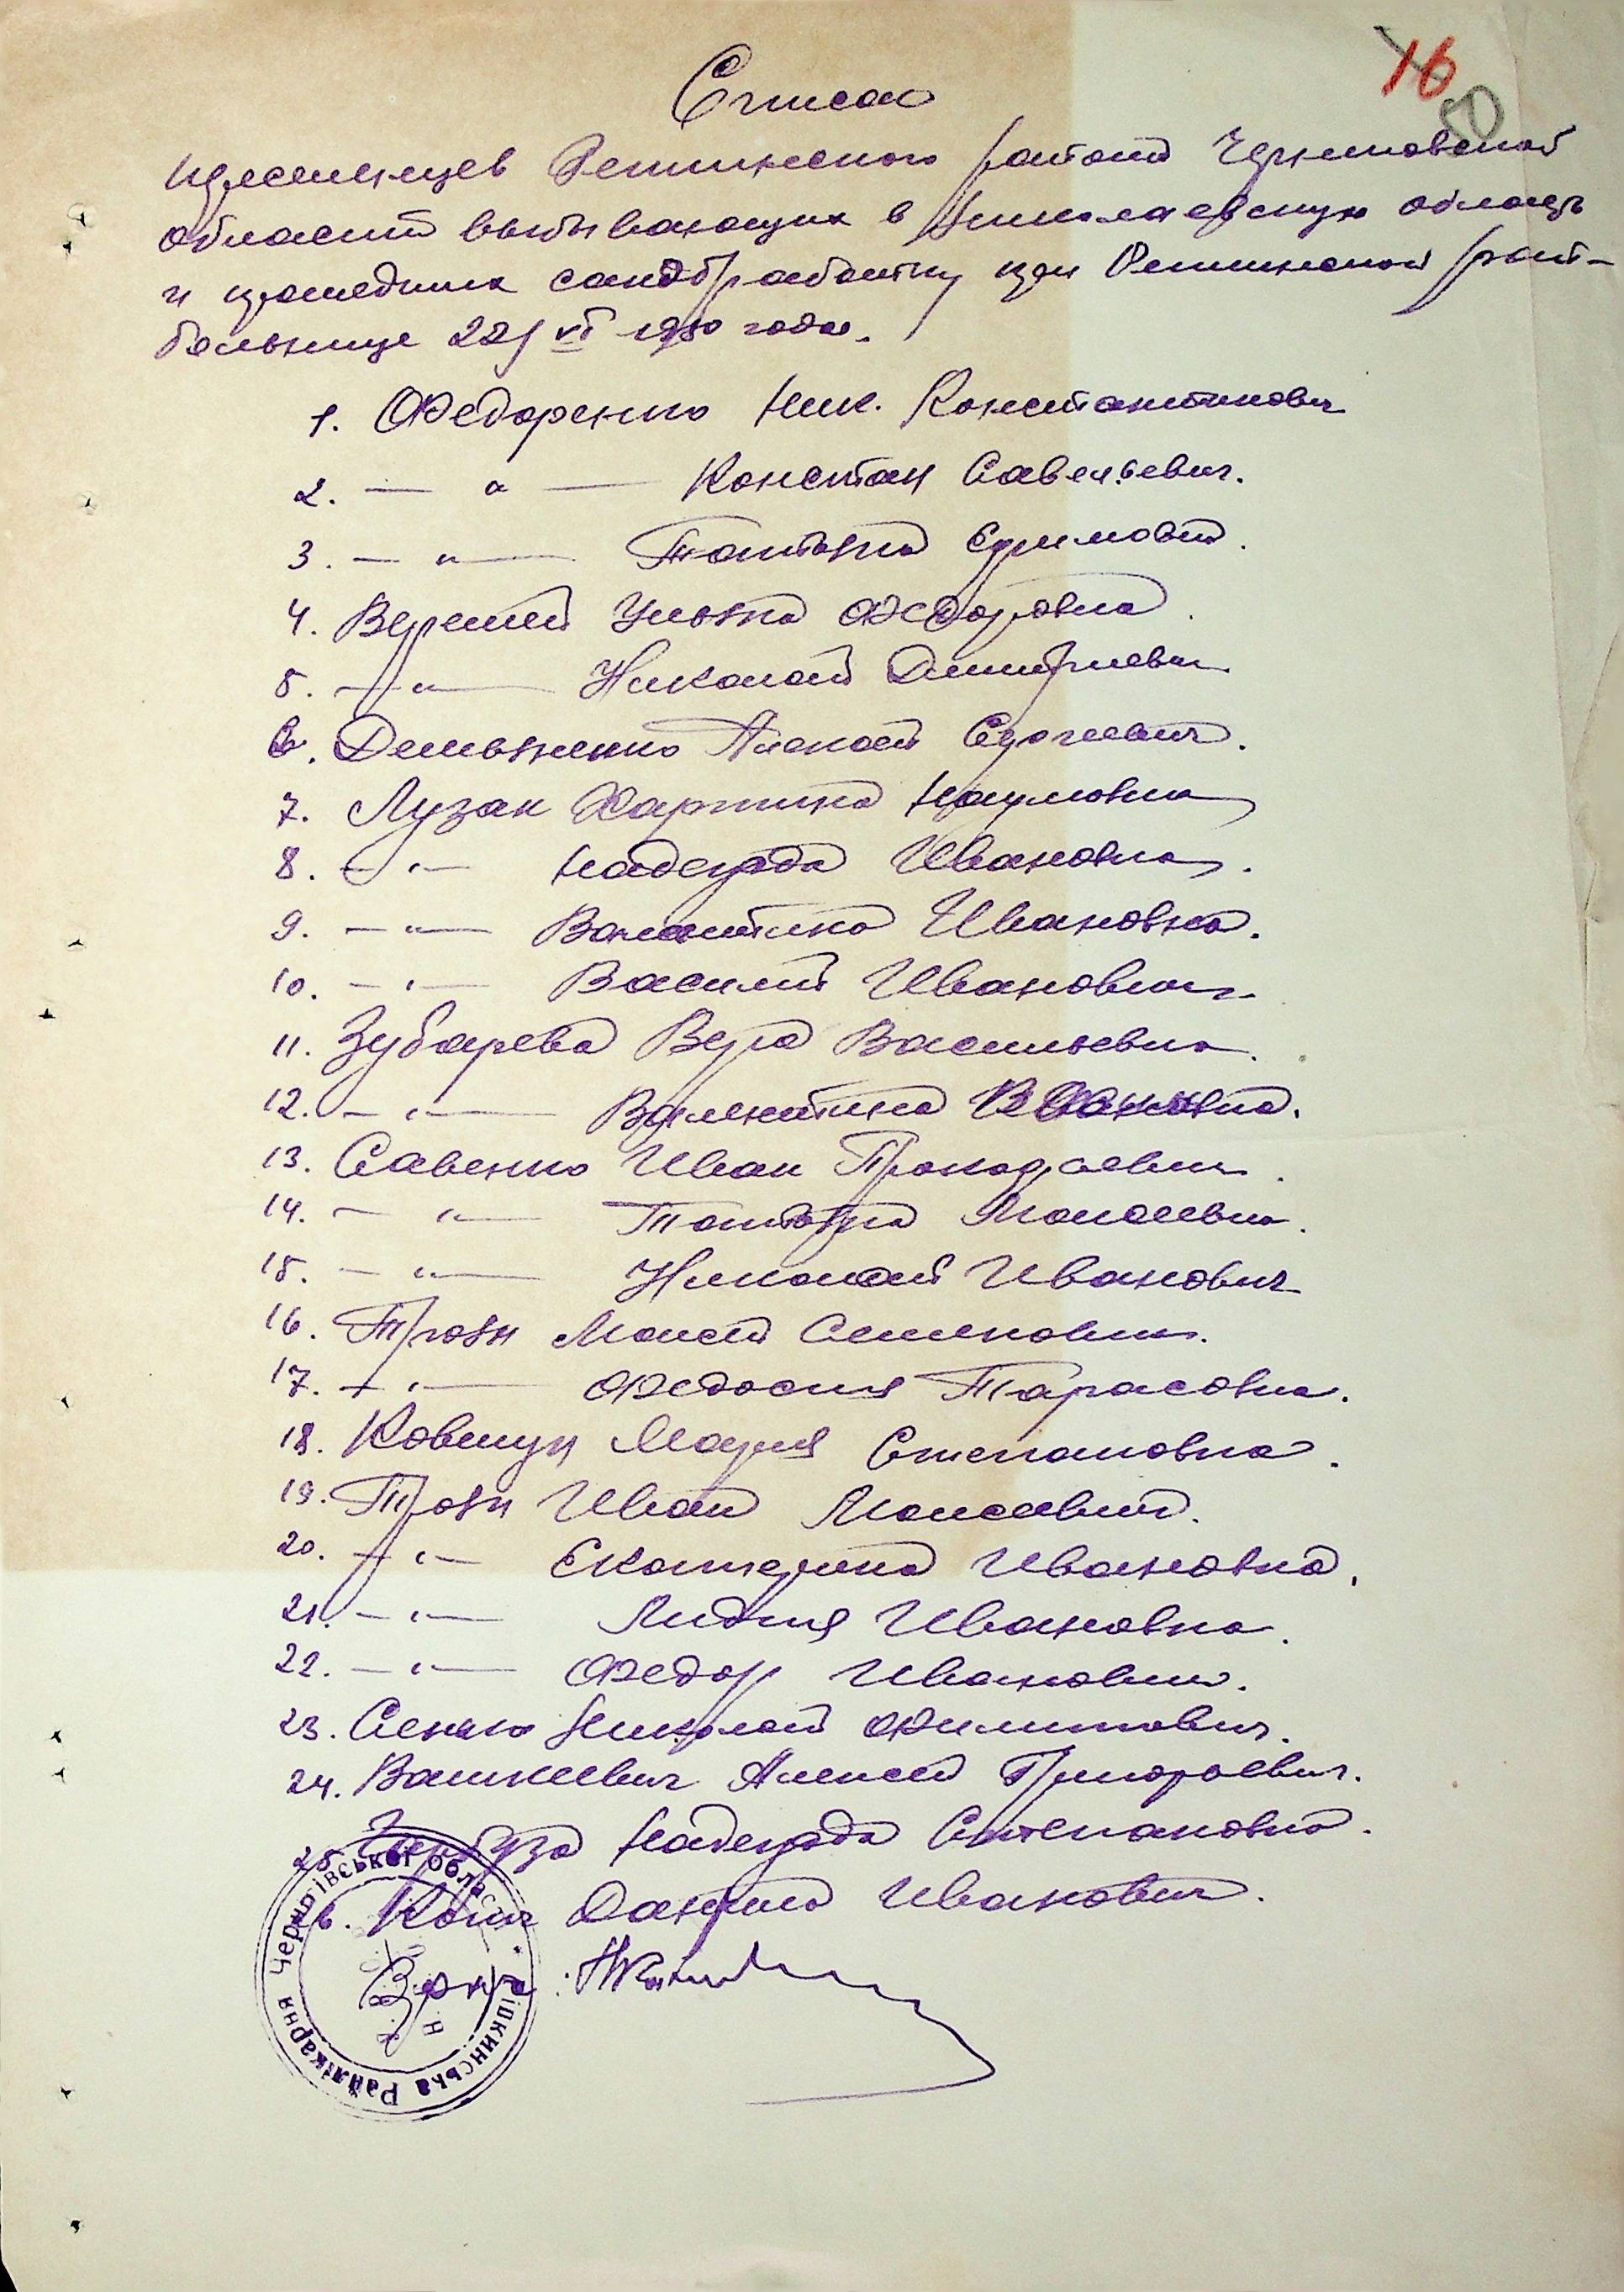 16
50
Список
переселенцев Репкинского района Черниговской
области выбывающих в Николаевскую область
и прошедших санобработку при Репкинской рай-
больнице 22/VI 1950 года.
1. Федоренко Ник. Константинович
2. — " — Констан Савельевич.
3. — " — Татьяна Ефимовна.
4. Веремей Ульяна Федоровна.
5. — " — Николай Дмитриевич.
6. Демьяненко Алексей Сергеевич.
7. Лузан Харитина Наумовна
8. — " — Надежда Ивановна.
9. — " — Валентина Ивановна.
10. — " — Василий Иванович.
11. Зубарева Вера Васильевна.
12. — " — Валентина Ивановна.
13. Савенко Иван Прокофьевич.
14. — " — Татьяна Моисеевна.
15. — " — Николай Иванович
16. Троян Моисей Семенович.
17. — " — Федосия Тарасовна.
18. Ковшун Мария Степановна.
19. Троян Иван Моисеевич.
20. — " — Екатерина Ивановна.
21. — " — Лидия Ивановна.
22. — " — Федор Иванович.
23. Сенько Николай Филиппович.
24. Вашкевич Алексей Григорьевич.
25. Надежда Степановна.
26. Данило Иванович.
Врач
Чернігівської області * Ріпкинська Райлікарня